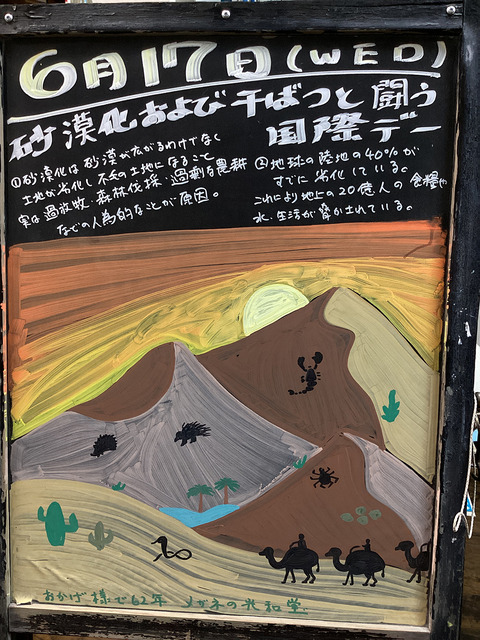 6月17日(WED)
砂漠化および干ばつと闘う
国際デー
①砂漠化は砂漠が広がるわけでなく
土地が劣化し不毛の土地になること
実は過放牧、森林伐採、過剰な農耕
などの人為的なことが原因。
②地球の陸地の40%が
すでに劣化している。
これにより地上の20億人の食糧や
水、生活が脅かされている。
おかげ様で62年 メガネの光和堂